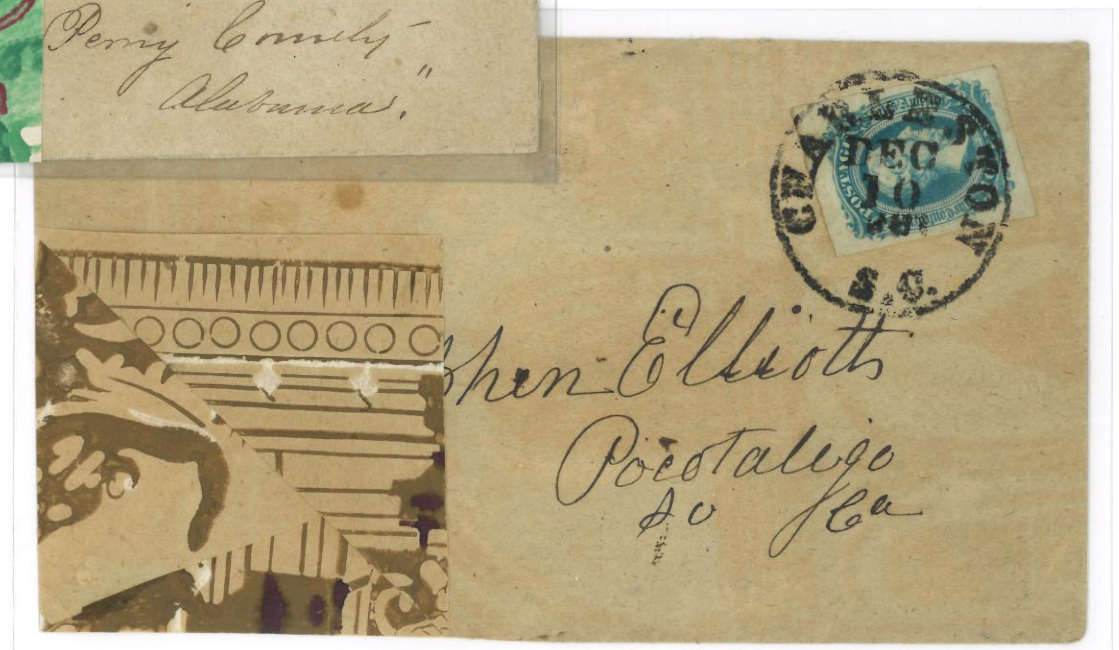 Perry County
Alabama."
CHARLESTON
DEC
10
S.C.
POSTAGE
phen Elliott
Pocotaligo
So Ca